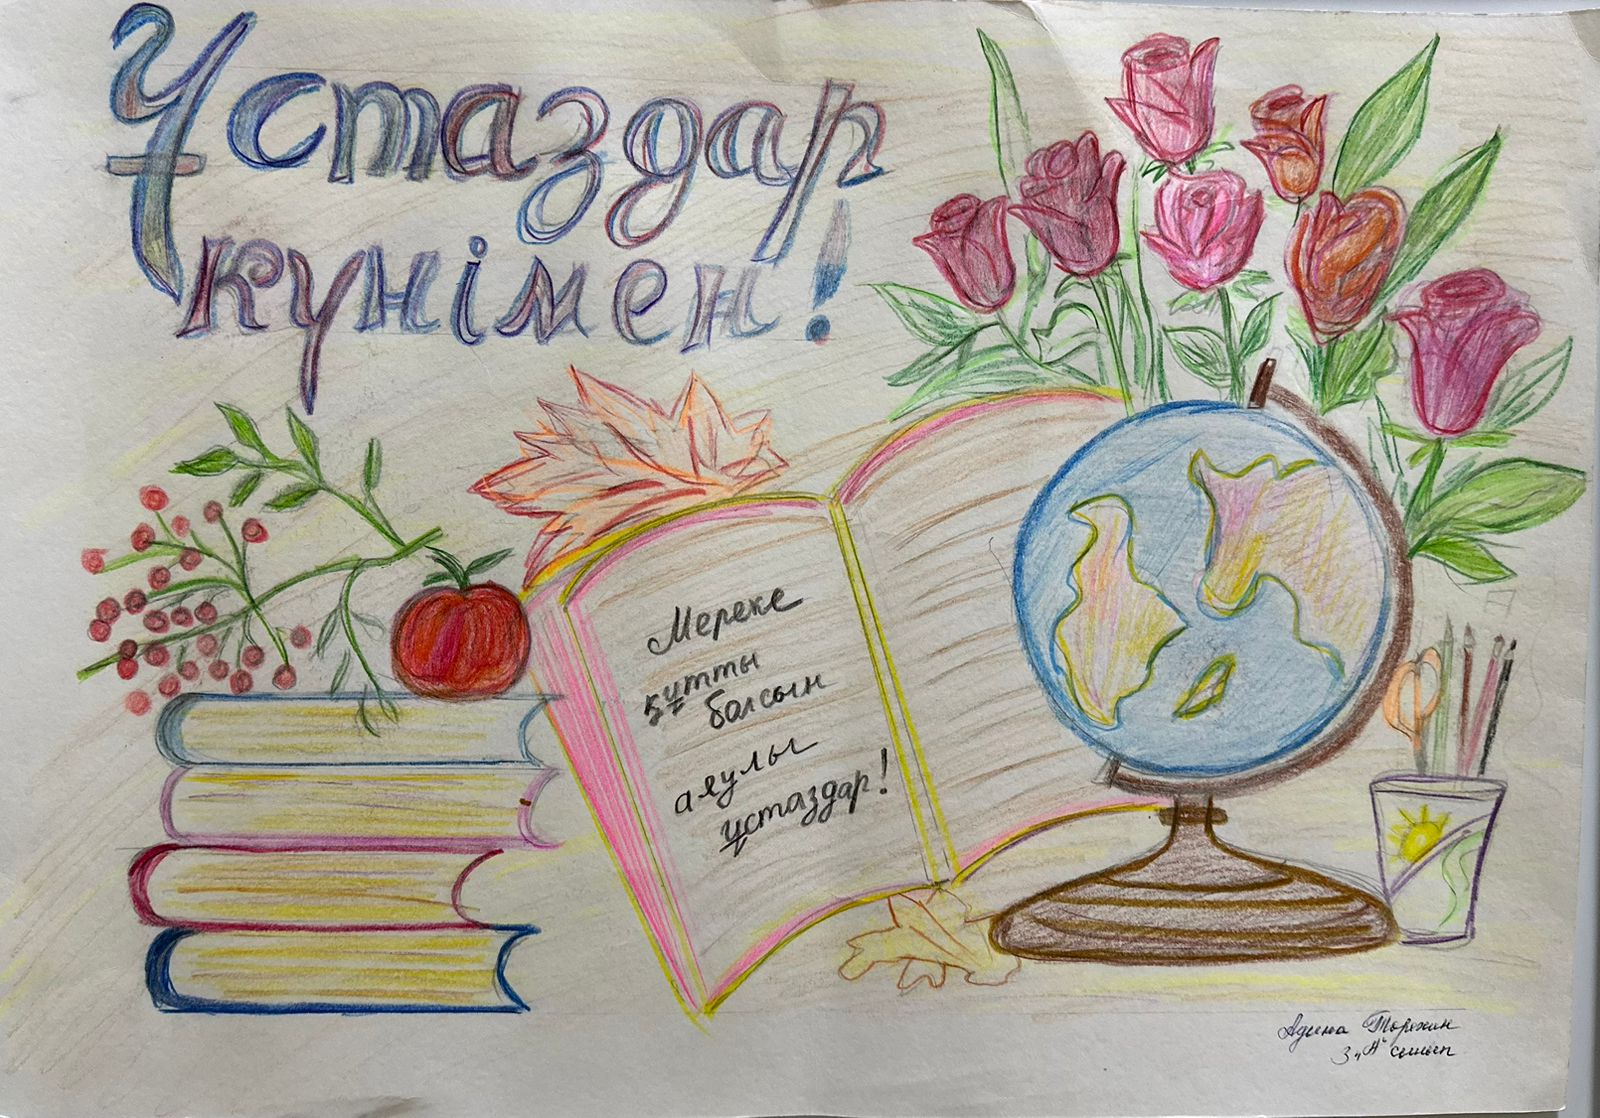 Ұстаздар
күнімен!
Мереке
құтты
болсын
аяулы
ұстаздар!
Адина Төрехан
3 "А" сынып